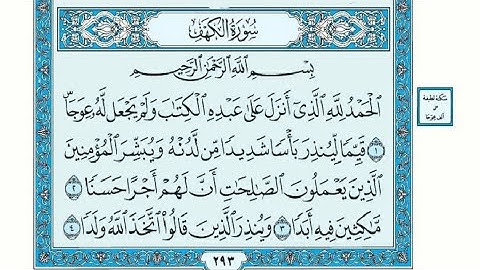 سُورَةُ الكَهْفِ
بِسْمِ اللَّهِ الرَّحْمَٰنِ الرَّحِيمِ
الْحَمْدُ لِلَّهِ الَّذِي أَنزَلَ عَلَىٰ عَبْدِهِ الْكِتَابَ وَلَمْ يَجْعَل لَّهُ عِوَجَاۜ
١ قَيِّمًا لِّيُنذِرَ بَأْسًا شَدِيدًا مِّن لَّدُنْهُ وَيُبَشِّرَ الْمُؤْمِنِينَ
الَّذِينَ يَعْمَلُونَ الصَّالِحَاتِ أَنَّ لَهُمْ أَجْرًا حَسَنًا ٢
مَّاكِثِينَ فِيهِ أَبَدًا ٣ وَيُنذِرَ الَّذِينَ قَالُوا اتَّخَذَ اللَّهُ وَلَدًا ٤
٢٩٣
سكتة لطيفة